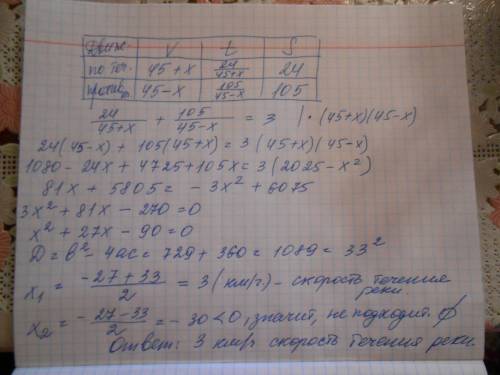 Движ. V t S
по теч. 45+x 24/45+x 24
против. 45-x 105/45-x 105
24/45+x + 105/45-x = 3 | ·(45+x)(45-x)
24(45-x) + 105(45+x) = 3(45+x)(45-x)
1080 - 24x + 4725 + 105x = 3(2025 - x²)
81x + 5805 = -3x² + 6075
3x² + 81x - 270 = 0
x² + 27x - 90 = 0
D = b² - 4ac = 729 + 360 = 1089 = 33²
x₁ = -27+33/2 = 3 (км/ч) - скорость течения реки.
x₂ = -27-33/2 = -30 < 0, значит, не подходит. ∅
Ответ: 3 км/ч скорость течения реки.